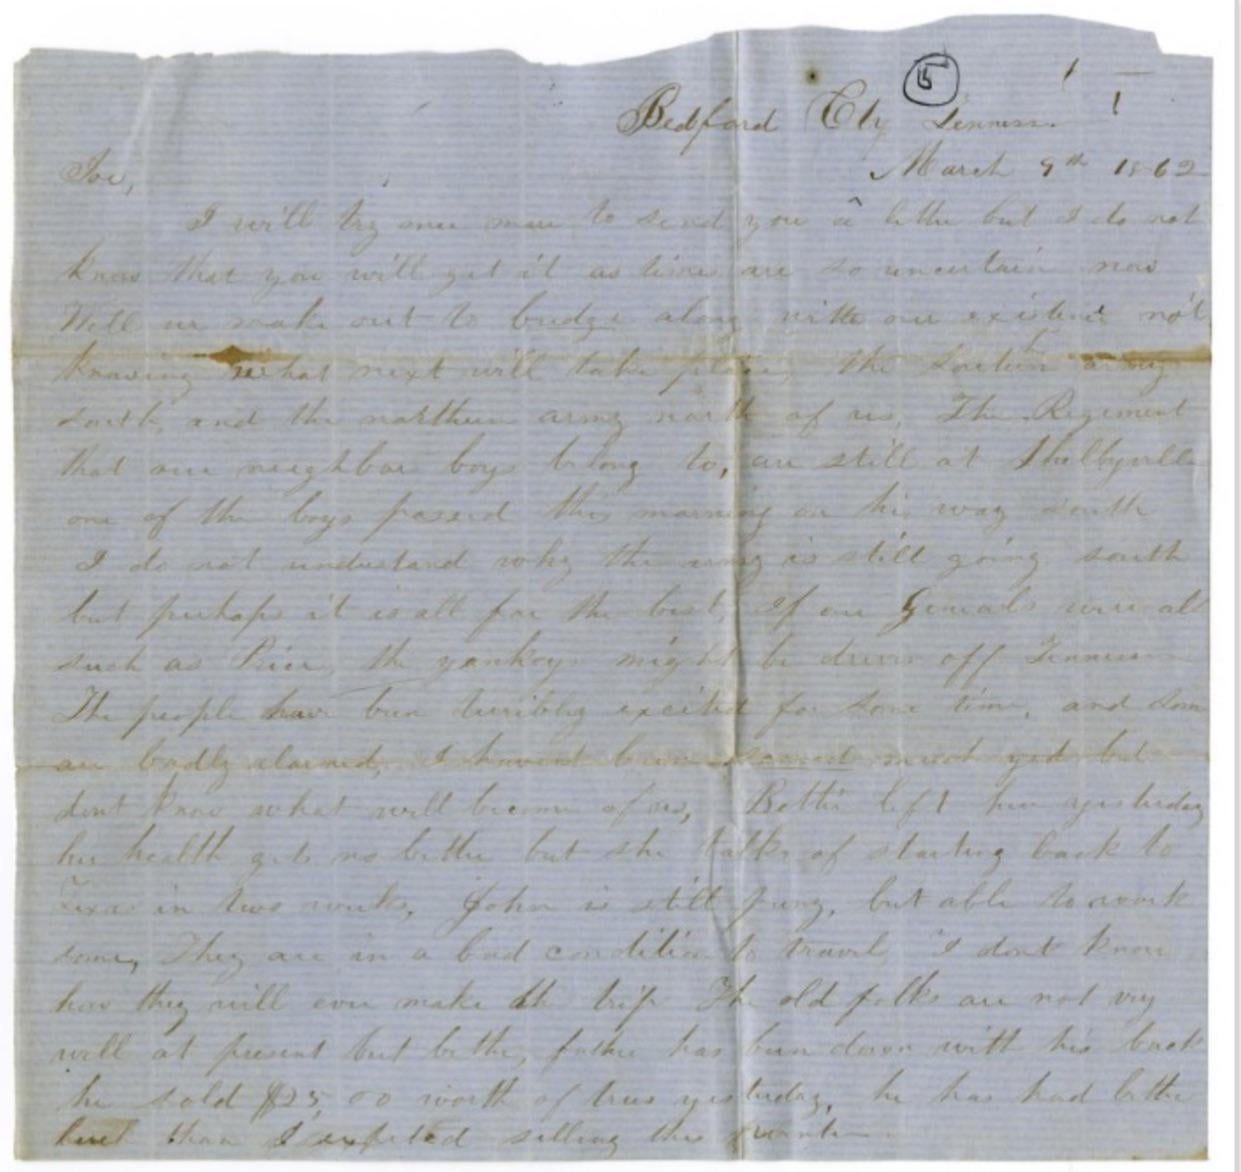 15
Bedford Cty Tenness.
March 9th 1862
Joe,
I will try once more to send you a letter but I do not
know that you will get it as times are so uncertain now
Well we make out to budge along with our existence not
knowing what next will take place, the Southern army
south, and the northern army north of us, The Regiment
that our neighbor boys belong to, are still at Shelbyville
one of the boys passed this morning on his way south
I do not understand why the army is still going south
but perhaps it is all for the best, If our Generals were al
such as Price, the yankeys might be driven off Tennessee
The people have been terribly excited for some time, and some
are badly alarmed, I havent been scared much yet but
dont know what will become of us, Bettie left here yesterday
her health gets no better but she talks of starting back to
Texas in two weeks, John is still puny, but able to work
some, They are in a bad condition to travel I dont know
how they will ever make the trip The old folks are not very
well at present but better, father has been down with his back
he sold $25,00 worth of trees yesterday, he has had better
luck than I expected selling this winter